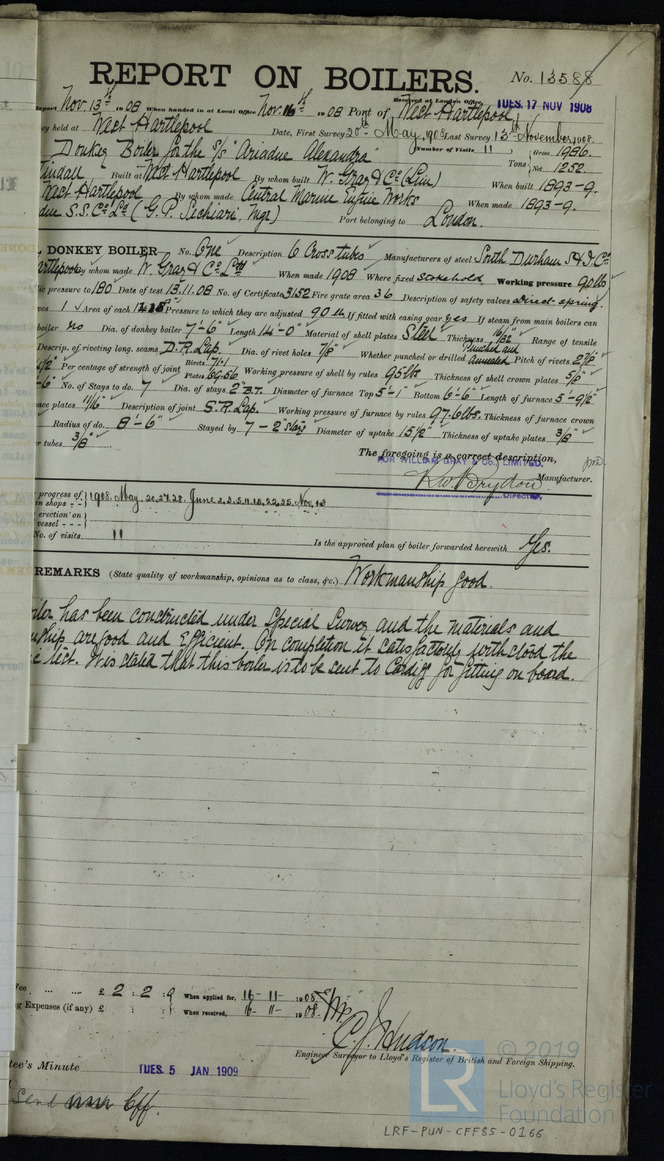 REPORT ON BOILERS.
No. 13588
Received at London Office TUES. 17 NOV 1908
Report Nov. 13th 1908 When handed in at Local Office Nov. 16th 1908 Port of West Hartlepool
held at West Hartlepool Date, First Survey 20th May, 1908 Last Survey 13th November, 1908.
Number of Visits 11
Donkey Boiler for the S/S "Ariadne Alexandra" Tons Gross 1986. Net 1252.
Built at West Hartlepool By whom built W. Gray & Co (Lim) When built 1893-9.
West Hartlepool By whom made Central Marine Engine Works When made 1893-9.
S.S. Co Ld (G. P. Sechiari, Mgr) Port belonging to London.
DONKEY BOILER No. One Description 6 Cross tubes Manufacturers of steel South Durham S & I Co
by whom made W. Gray & Co Ltd When made 1908 Where fixed Stokehold Working pressure 90 lb
pressure to 180 Date of test 13.11.08 No. of Certificate 3152 Fire grate area 36 Description of safety valves Direct spring.
1 Area of each Pressure to which they are adjusted 90 lb. If fitted with easing gear yes If steam from main boilers can
boiler no Dia. of donkey boiler 7'-6" Length 14'-0" Material of shell plates Steel Thickness 16/32" Range of tensile
Descrip. of riveting long. seams D.R. Lap. Dia. of rivet holes 7/8" Whether punched or drilled Punched and annealed Pitch of rivets 2 7/8"
Per centage of strength of joint Rivets 71.1 Plates 69.56 Working pressure of shell by rules 95 lbs Thickness of shell crown plates 5/8"
No. of Stays to do. 7 Dia. of stays 2" B.T. Diameter of furnace Top 5'-1" Bottom 6'-6" Length of furnace 5'-9 1/2"
plates 11/16" Description of joint S.R. Lap. Working pressure of furnace by rules 97.6 lbs. Thickness of furnace crown
Radius of do. 8'-6" Stayed by 7 - 2" stays Diameter of uptake 15 1/2" Thickness of uptake plates 3/8"
tubes 3/8"
The foregoing is a correct description,
FOR WILLIAM GRAY & CO., LIMITED.
Manufacturer.
Director.
progress of
in shops 1908. May. 20.27.28. June. 2.3.5.9.15.22.25. Nov. 13
erection on
vessel
No. of visits 11
Is the approved plan of boiler forwarded herewith Yes.
REMARKS (State quality of workmanship, opinions as to class, &c.) Workmanship good.
has been constructed under Special Survey and the materials and
are good and Efficient. On completion it satisfactorily withstood the
test. It is stated that this boiler is to be sent to Cardiff for fitting on board.
Fee £ 2 : 2 : 9 When applied for, 16-11-1908
Expenses (if any) £ : : When received, 16-11-1908.
C. J. Hudson.
Engineer Surveyor to Lloyd's Register of British and Foreign Shipping.
Minute TUES. 5 JAN 1909
© 2019
LR
Lloyd's Register
Foundation
LRF-PUN-CFF85-0166